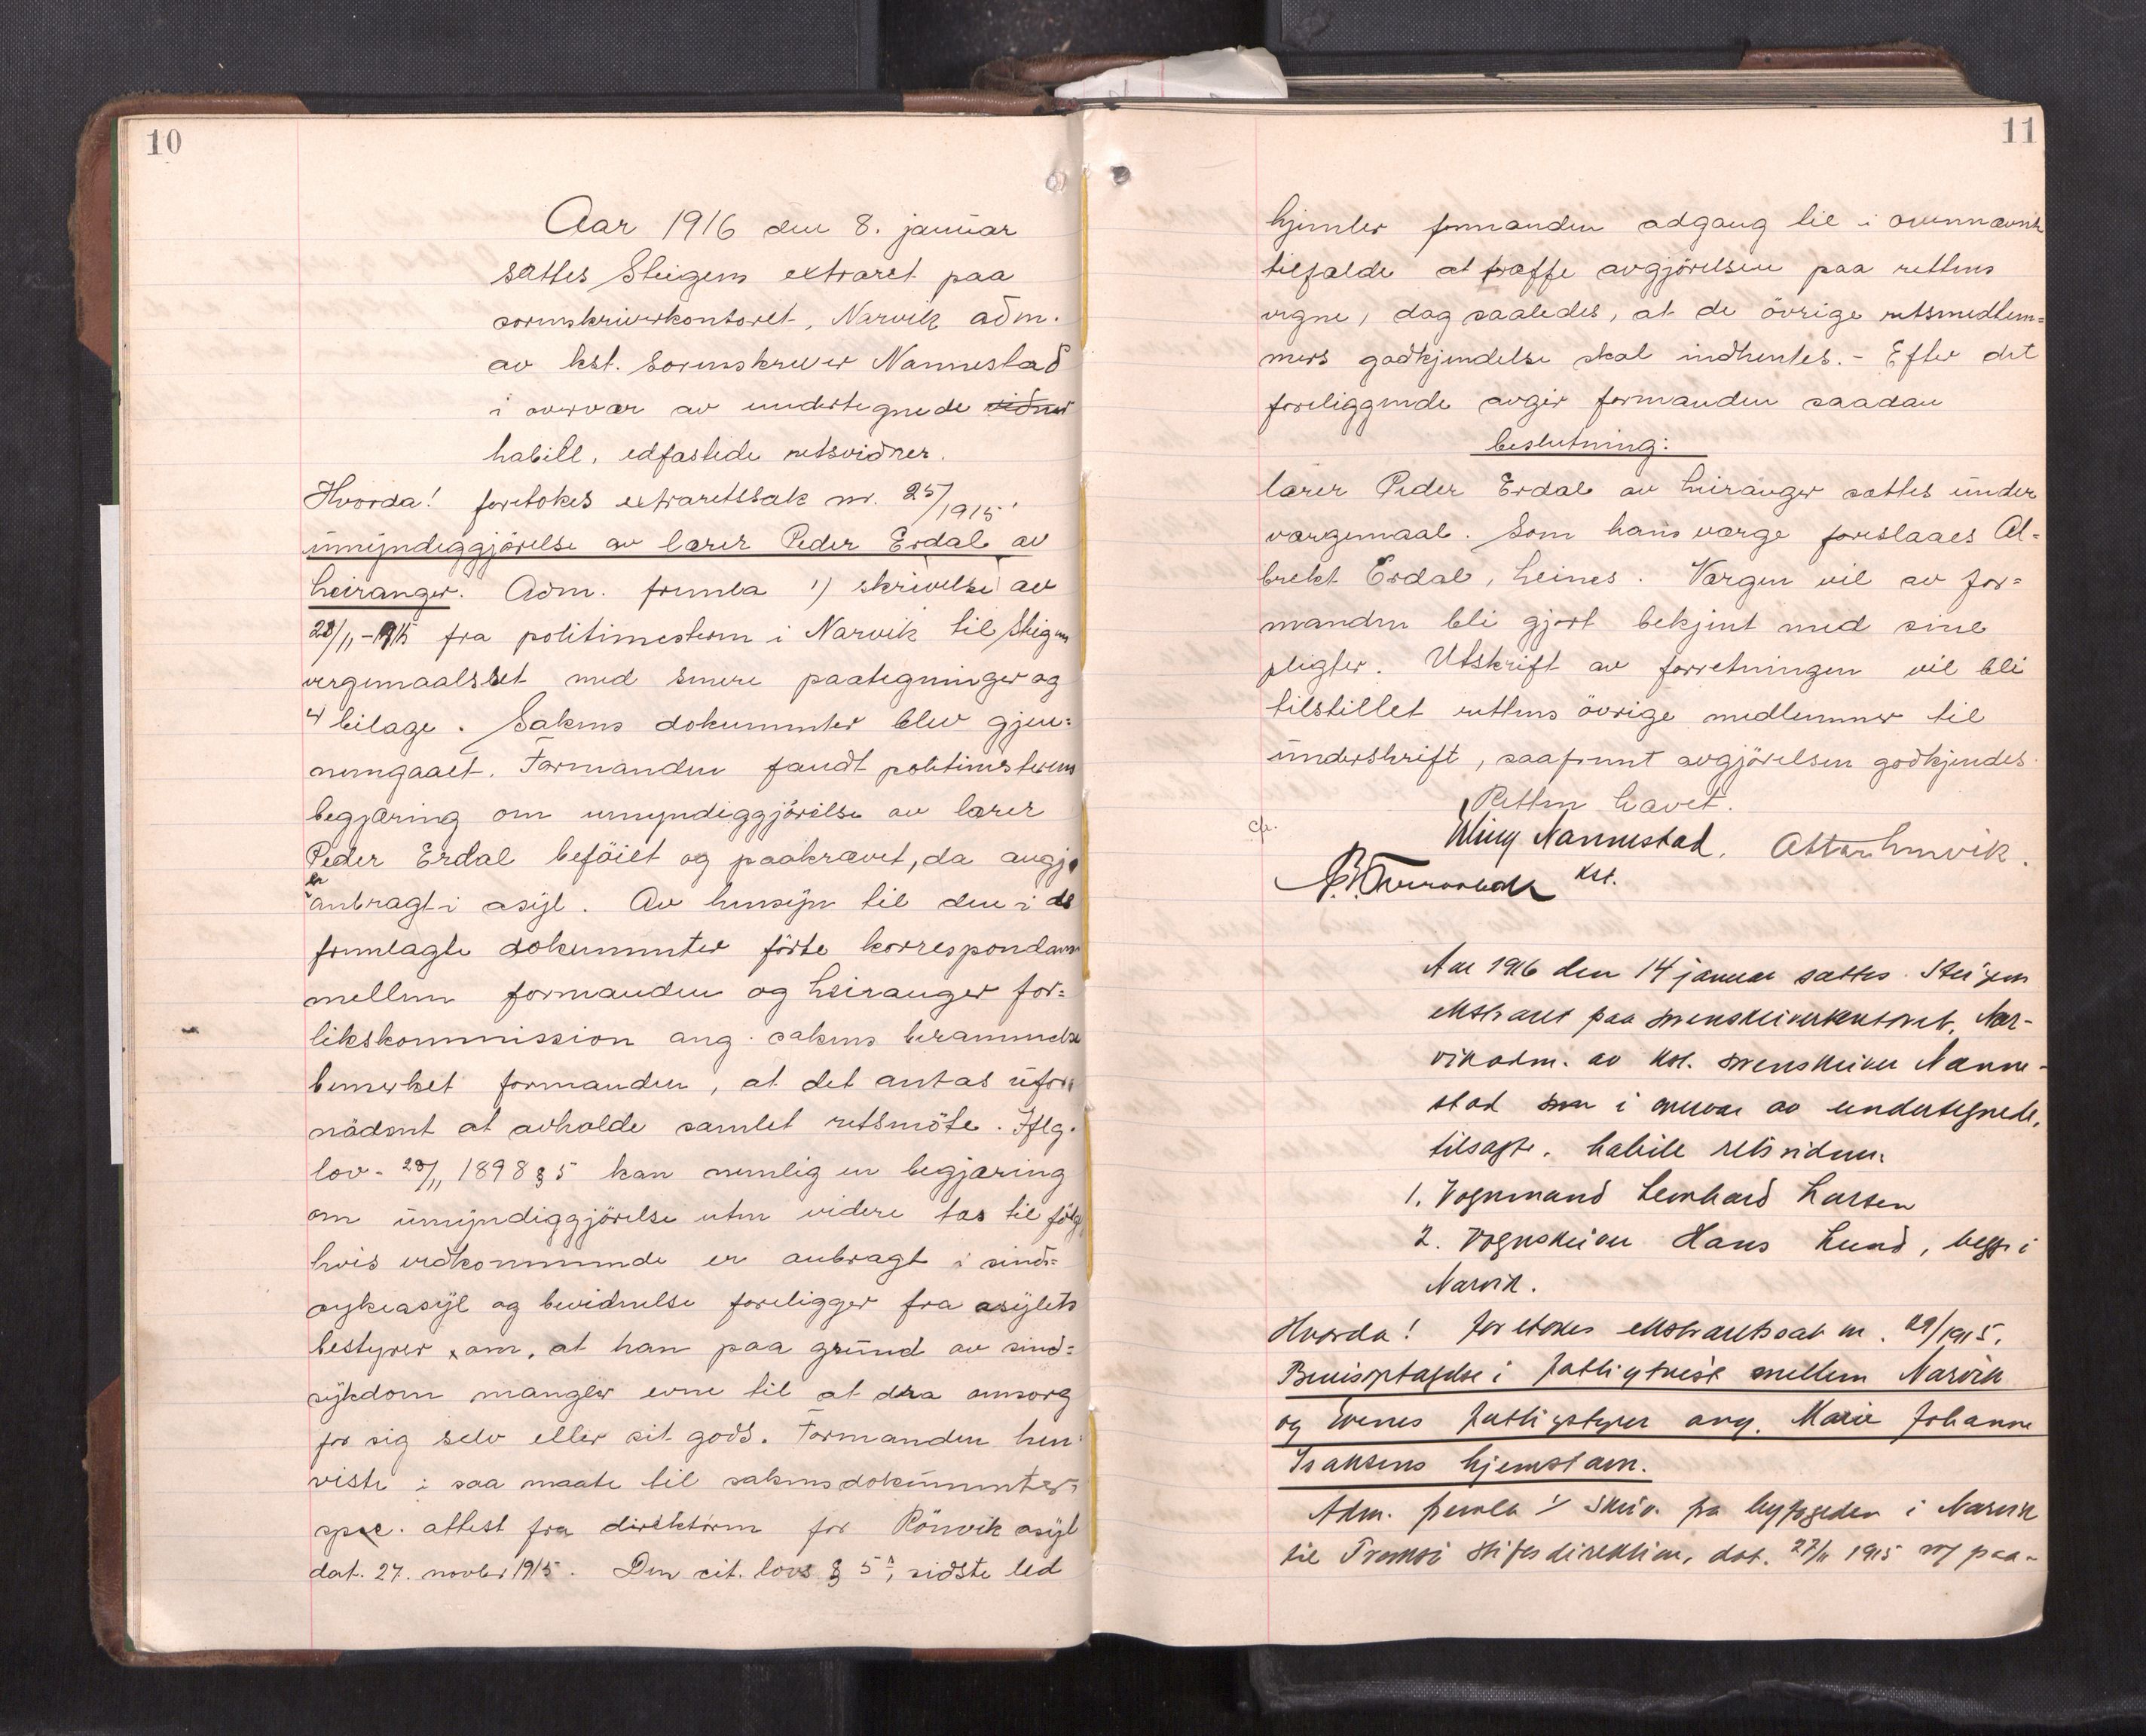 10
Aar 1916 den 8. januar
sættes Steigens extraret paa
sorenskriverkontoret, Narvik adm.
av kst. sorenskriver Nannestad
i overvær av undertegnede vidner
habile, edfæstede retsvidner.
Hvorda! foretokes extraretssak nr. 25/1915.
umyndiggjørelse av lærer Peder Erdal av
Leiranger. Adm. fremla 1) skrivelse av
28/11-1915 fra politimesteren i Narvik til Steigen
vergemaalsret med senere paategninger og
4 bilage. Sakens dokumenter blev gjen=
nemgaaet. Formanden fandt politimesterens
begjæring om umyndiggjørelse av lærer
Peder Erdal beføiet og paakrævet, da angj.
er
anbragt i asyl. Av hensyn til den i de
fremlagte dokumenter førte korrespondanse
mellem formanden og Leiranger for=
likskommission ang. sakens berammelse
bemerket formanden, at det antas ufor=
nødent at avholde samlet retsmøte. Iflg.
lov - 28/11 1898 § 5 kan nemlig en begjæring
om umyndiggjørelse uten videre tas til følge
hvis vedkommende er anbragt i sinds=
sykeasyl og bevidnelse foreligger fra asylets
bestyrer om, at han paa grund av sind=
sykdom mangler evne til at dra omsorg
for sig selv eller sit gods. Formanden hen=
viste i saa maate til sakens dokumenter,
spec. attest fra direktøren for Rønvik asyl
dat. 27. novbr 1915. Den cit. lovs § 5, sidste led
11
hjemler formanden adgang til i ovennævnte
tilfælde at træffe avgjørelsen paa rettens
vegne, dog saaledes, at de øvrige retsmedlem=
mers godkjendelse skal indhentes. - Efter det
foreliggende avgir formanden saadan
beslutning:
lærer Peder Erdal av Leiranger sættes under
værgemaal. Som hans værge foreslaaes Al=
brekt Erdal, Leines. Værgen vil av for=
manden bli gjort bekjent med sine
pligter. Utskrift av forretningen vil bli
tilstillet rettens øvrige medlemmer til
underskrift, saafremt avgjørelsen godkjendes.
Retten hævet.
Nannestad.
kst.
Aar 1916 den 14 januar sættes Steigen
ekstraret paa sorenskriverkontoret, Nar-
vik adm. av kst. sorenskriver Nanne-
stad i overvær av undertegnede,
tilsagte, habile retsvidner:
1. Vognmand Leonhard Larsen
2. Vognskriver Hans Lund, begge i
Narvik.
Hvorda! foretokes ekstraretssak nr. 29/1915.
Bevisoptagelse i fattigtvist mellem Narvik
og Evenes fattigstyrer ang. Marie Johanne
Isaksens hjemstavn.
Adm. fremla 1/ skriv. fra byfogeden i Narvik
til Tromsø stiftsdirektion, dat. 27/11 1915 m/ paa-